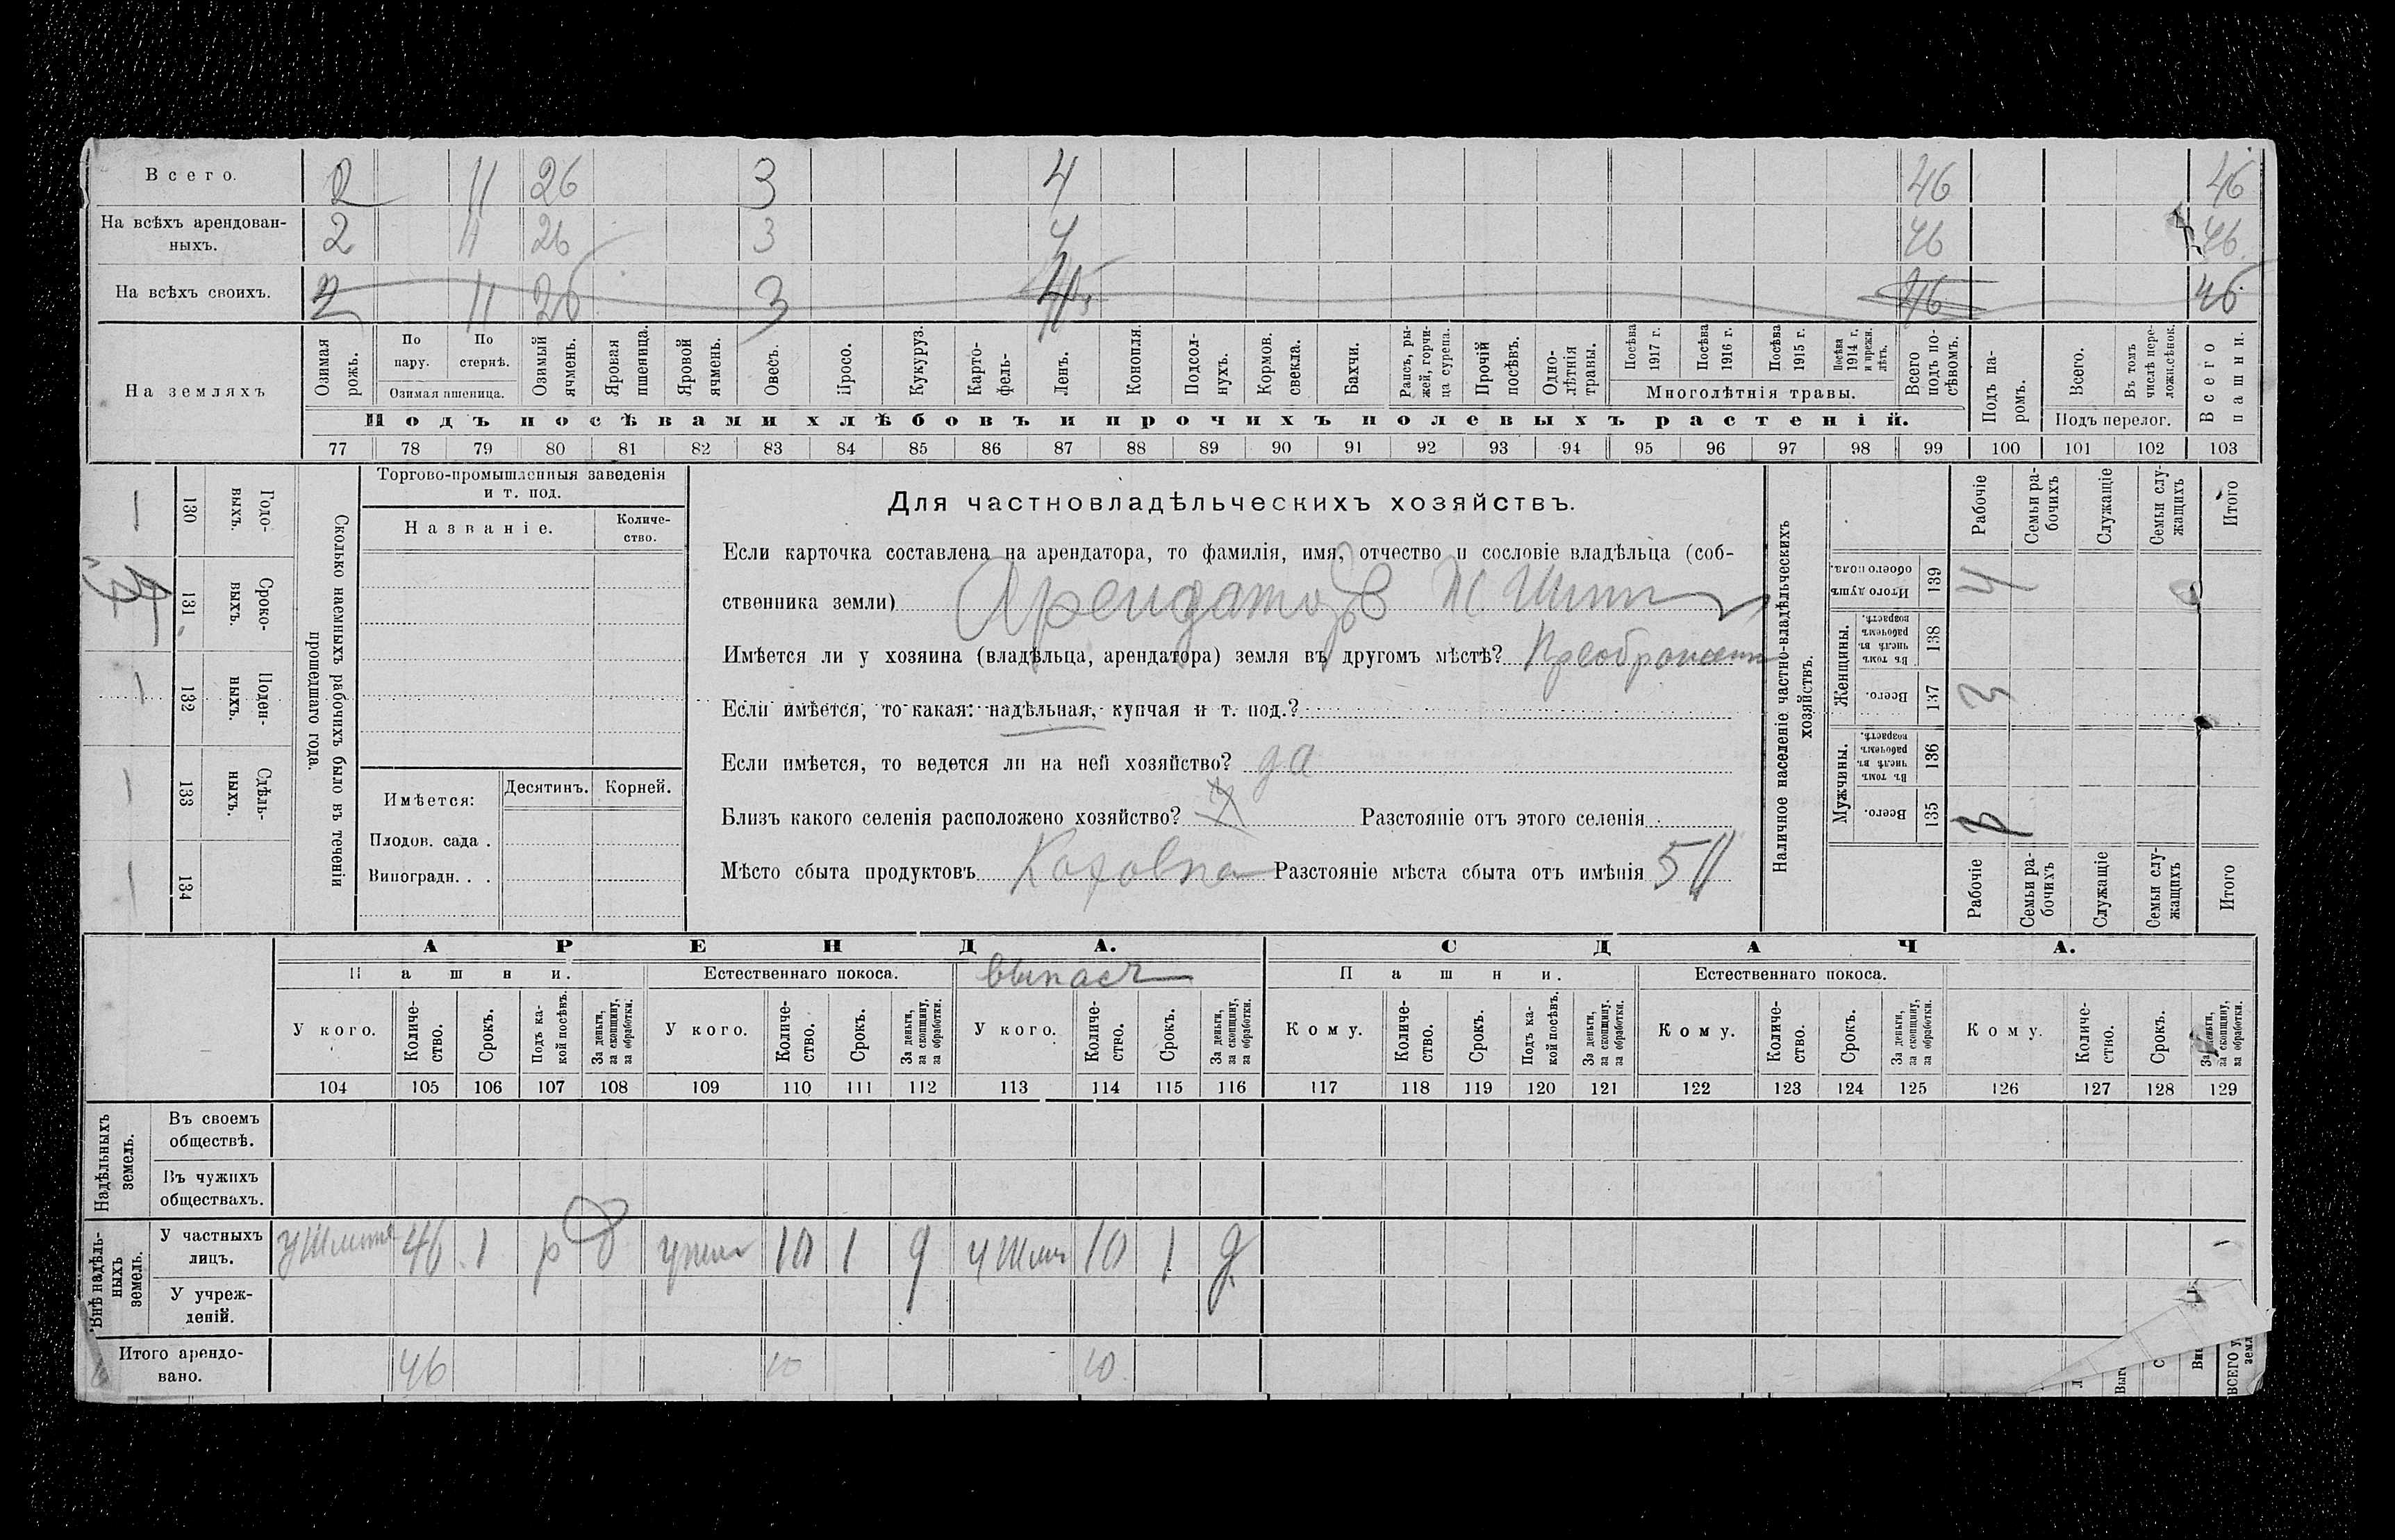 Всего. 2 11 26 3 4 46 46
На всѣхъ арендован-
ныхъ. 2 11 26 3 4 46 46
На всѣхъ своихъ. 2 11 26 3 4 46 46
На земляхъ
Озимая рожь.
По пару.
По стернѣ.
Озимая пшеница.
Озимый ячмень.
Яровая пшеница.
Яровой ячмень.
Овесъ.
Просо.
Кукуруз.
Карто-
фель-
Ленъ.
Конопля.
Подсол-
нухъ.
Кормов. свекла.
Бахчи.
Рапсъ, ры-
жей, горчи-
ца сурепа.
Прочій посѣвъ.
Одно-
лѣтнія
травы.
Посѣва 1917 г.
Посѣва 1916 г.
Посѣва 1915 г.
Посѣва 1914 г. и прежн. лѣтъ.
Многолѣтнія травы.
Всего подъ по-
сѣвомъ.
Подъ па-
ромъ.
Всего.
Въ томъ числѣ пере-
ложн.сѣнок.
Подъ перелог.
Всего пашни.
Подъ посѣвами хлѣбовъ и прочихъ полевыхъ растеній.
77 78 79 80 81 82 83 84 85 86 87 88 89 90 91 92 93 94 95 96 97 98 99 100 101 102 103
Сколько наемныхъ рабочихъ было въ теченіи
прошедшаго года.
Годо-
выхъ.
130
Сроко-
ныхъ.
131
Поден-
ныхъ.
132
Сдѣль-
ныхъ.
133
134
Торгово-промышленныя заведенія
и т. под.
Названіе.
Количе-
ство.
Имѣется:
Десятинъ. Корней.
Плодов. сада .
Виноградн. . .
Для частновладѣльческихъ хозяйствъ.
Если карточка составлена на арендатора, то фамилія, имя, отчество и сословіе владѣльца (соб-
ственника земли) Арендаторъ
Имѣется ли у хозяина (владѣльца, арендатора) земля въ другомъ мѣстѣ?
Если имѣется, то какая: надѣльная, купчая и т. под.?
Если имѣется, то ведется ли на ней хозяйство? да
Близъ какого селенія расположено хозяйство? Разстояніе отъ этого селенія
Мѣсто сбыта продуктовъ Каховка Разстояніе мѣста сбыта отъ имѣнія
Наличное населеніе частно-владѣльческихъ
хозяйствъ.
Рабочіе
Семьи ра-
бочихъ
Служащіе
Семьи слу-
жащихъ
Итого
Итого душъ обоего пола.
139 4
Женщины.
Въ томъ числѣ въ рабочемъ возрастѣ.
138
Всего.
137 3
Мужчины.
Въ томъ числѣ въ рабочемъ возрастѣ.
136
Всего.
135
Рабочіе
Семьи ра-
бочихъ
Служащіе
Семьи слу-
жащихъ
Итого
АРЕНДА. СДАЧА.
Пашни. Естественнаго покоса. выпаса Пашни. Естественнаго покоса.
У кого. Количе-
ство. Срокъ. Подъ ка-
кой посѣвъ. За деньги,
за скопщину,
за обработки.
У кого. Количе-
ство. Срокъ. За деньги,
за скопщину,
за обработки.
У кого. Количе-
ство. Срокъ. За деньги,
за скопщину,
за обработки.
Кому. Количе-
ство. Срокъ. Подъ ка-
кой посѣвъ. За деньги,
за скопщину,
за обработки.
Кому. Количе-
ство. Срокъ. За деньги,
за скопщину,
за обработки.
Кому. Количе-
ство. Срокъ. За деньги,
за скопщину,
за обработки.
104 105 106 107 108 109 110 111 112 113 114 115 116 117 118 119 120 121 122 123 124 125 126 127 128 129
Надѣльныхъ
земель.
Въ своемъ
обществѣ.
Въ чужихъ
обществахъ.
Внѣ надѣль-
ныхъ
земель.
У частныхъ
лицъ. 46 1 р д 10 1 д 10 1 д
У учреж-
деній.
Итого арендо-
вано. 46 10 10